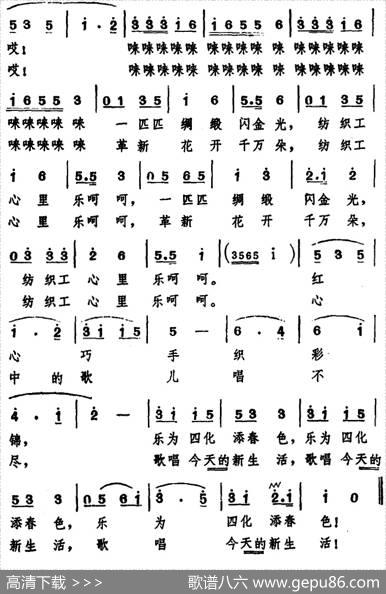 5 3 5 | i · 2 | 3 3 3 3 i 6 | i 6 5 5 6 | 3 3 3 3 i 6 |
哎! 咪咪咪咪咪咪 咪咪咪咪 咪 咪咪咪咪咪咪
哎! 咪咪咪咪咪咪 咪咪咪咪 咪 咪咪咪咪咪咪
i 6 5 5 3 | 0 1 3 5 | i 6 | 5·5 6 | 0 1 3 5 |
咪咪咪咪 咪 一 匹匹 绸 缎 闪金 光, 纺 织工
咪咪咪咪 咪 革 新 花 开 千万 朵, 纺 织工
i 6 | 5·5 3 | 0 5 6 5 | i 3 | 2·i 2 |
心 里 乐呵 呵, 一 匹匹 绸 缎 闪金 光,
心 里 乐呵 呵, 革 新 花 开 千万 朵,
0 3 3 3 | 2 6 | 5·5 i | (3565 i) | 5 3 5 |
纺 织工 心 里 乐呵 呵。 红
纺 织工 心 里 乐呵 呵。 心
i · 2 | 3 i i 5 | 5 — | 6 · 4 | 6 i |
心 巧 手 织 彩
中 的 歌 儿 唱 不
4 · i | 2 — | 3 i i 5 | 5 3 3 | 3 i i 5 |
锦, 乐为 四化 添春 色, 乐为 四化
尽, 歌唱 今天的 新生 活, 歌唱 今天的
5 3 3 | 0 5 6 i | 3 · 5 | 3 i 2·i | i 0 ‖
添春 色, 乐 为 四化 添春 色!
新生 活, 歌 唱 今天的 新生 活!
高清下载 >>> 歌谱八六 www.gepu86.com